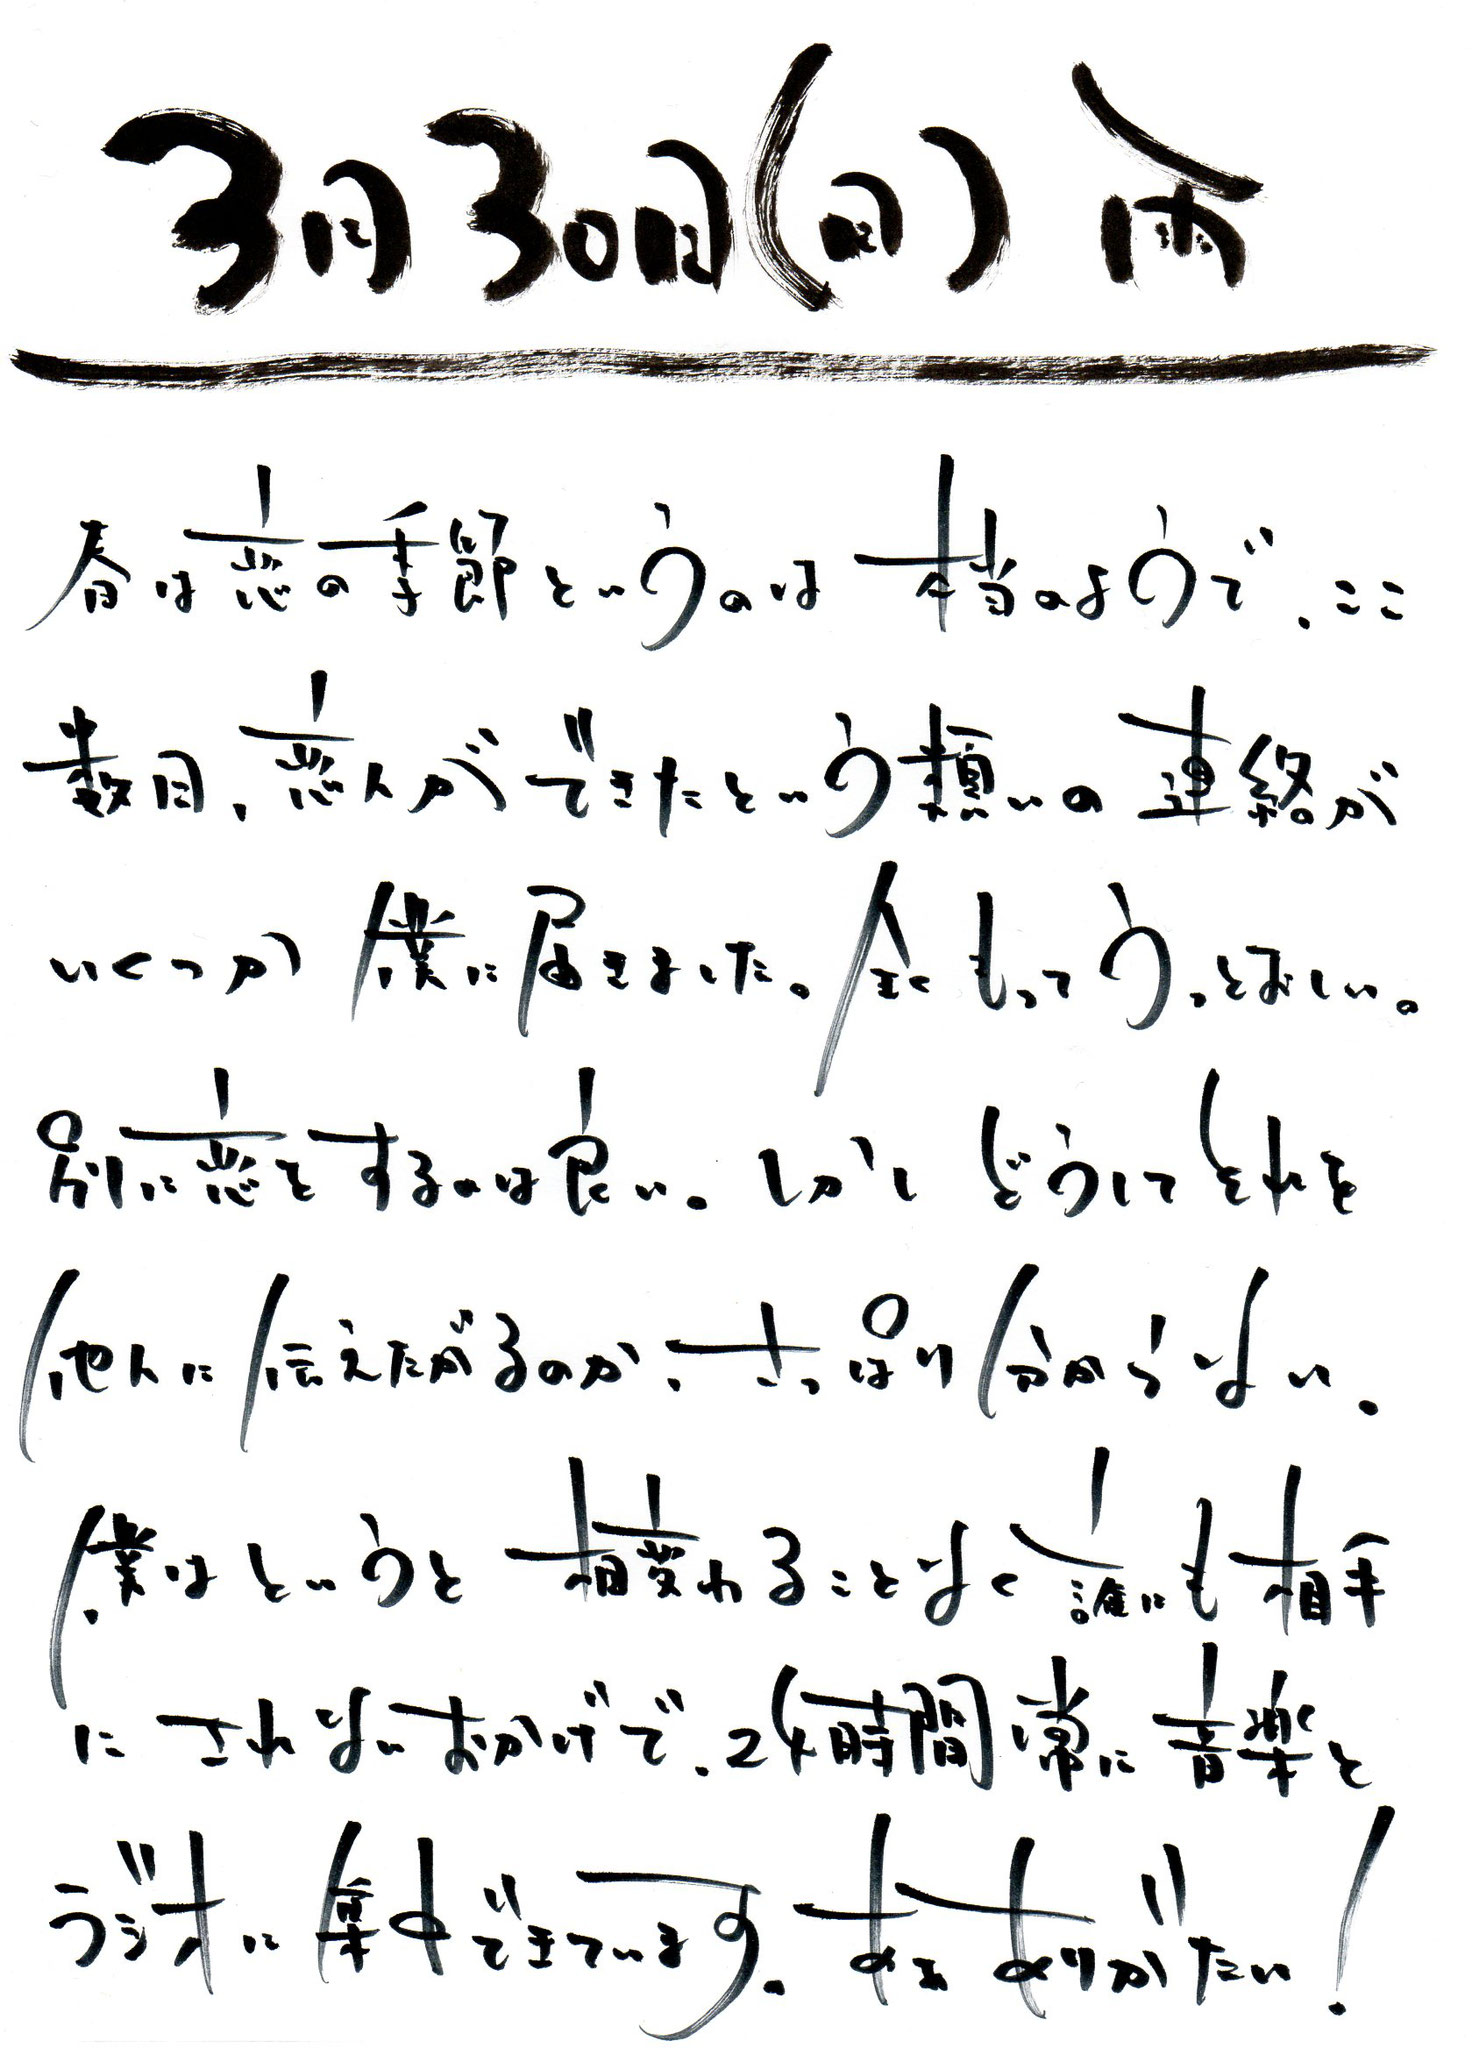 3月30日(日) 雨
春は恋の季節というのは本当のようで、ここ
数日、恋人ができたという類いの連絡が
いくつか僕に届きました。全くもってうっとおしい。
別に恋をするのは良い。しかしどうしてそれを
他人に伝えたがるのか、さっぱり分からない。
僕はというと相変わることなく誰にも相手
にされないおかげで、24時間常に音楽と
ラジオに集中できています。ああありがたい!